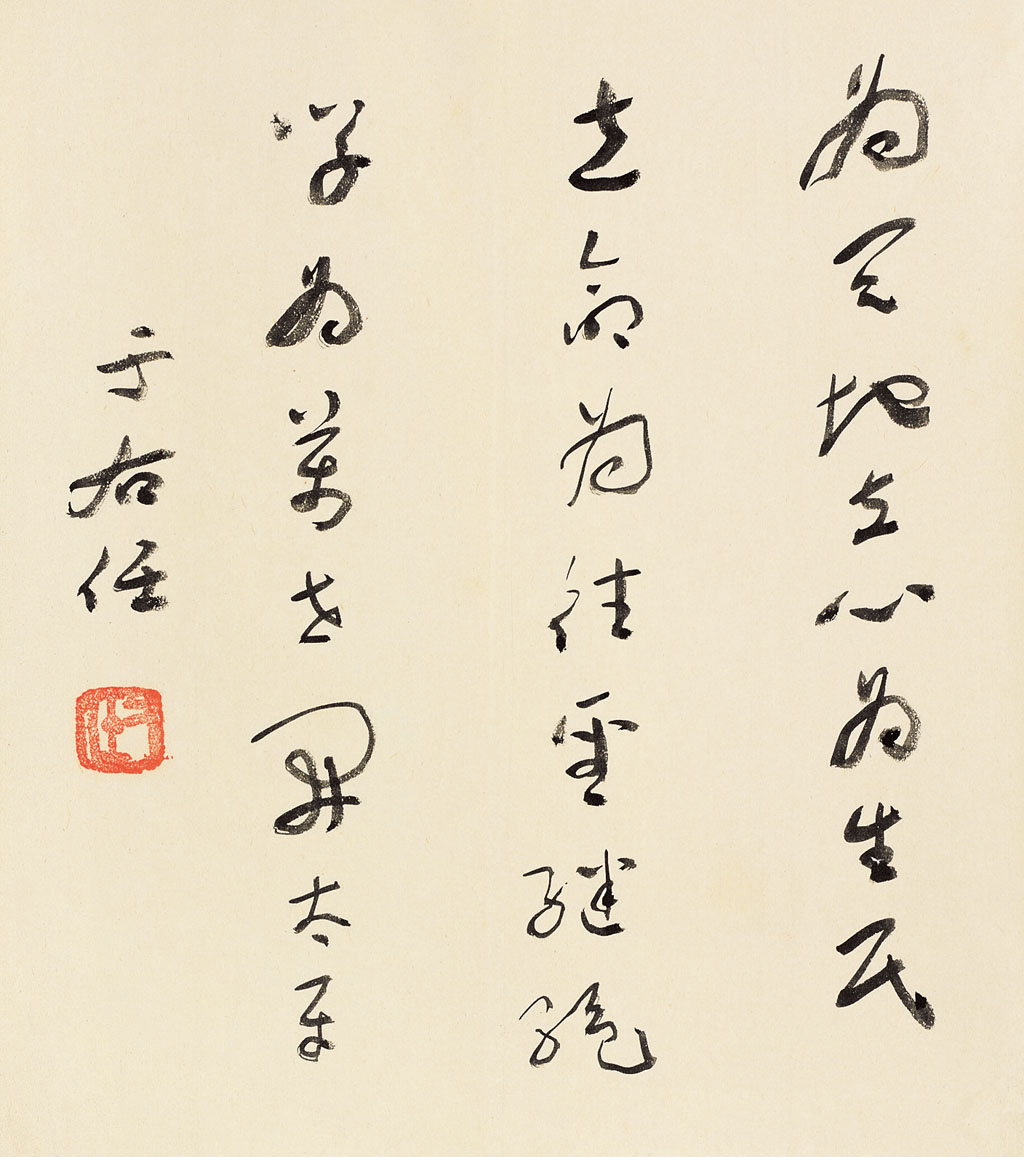 為天地立心為生民
立命為往聖繼絕
學為萬世開太平
于右任